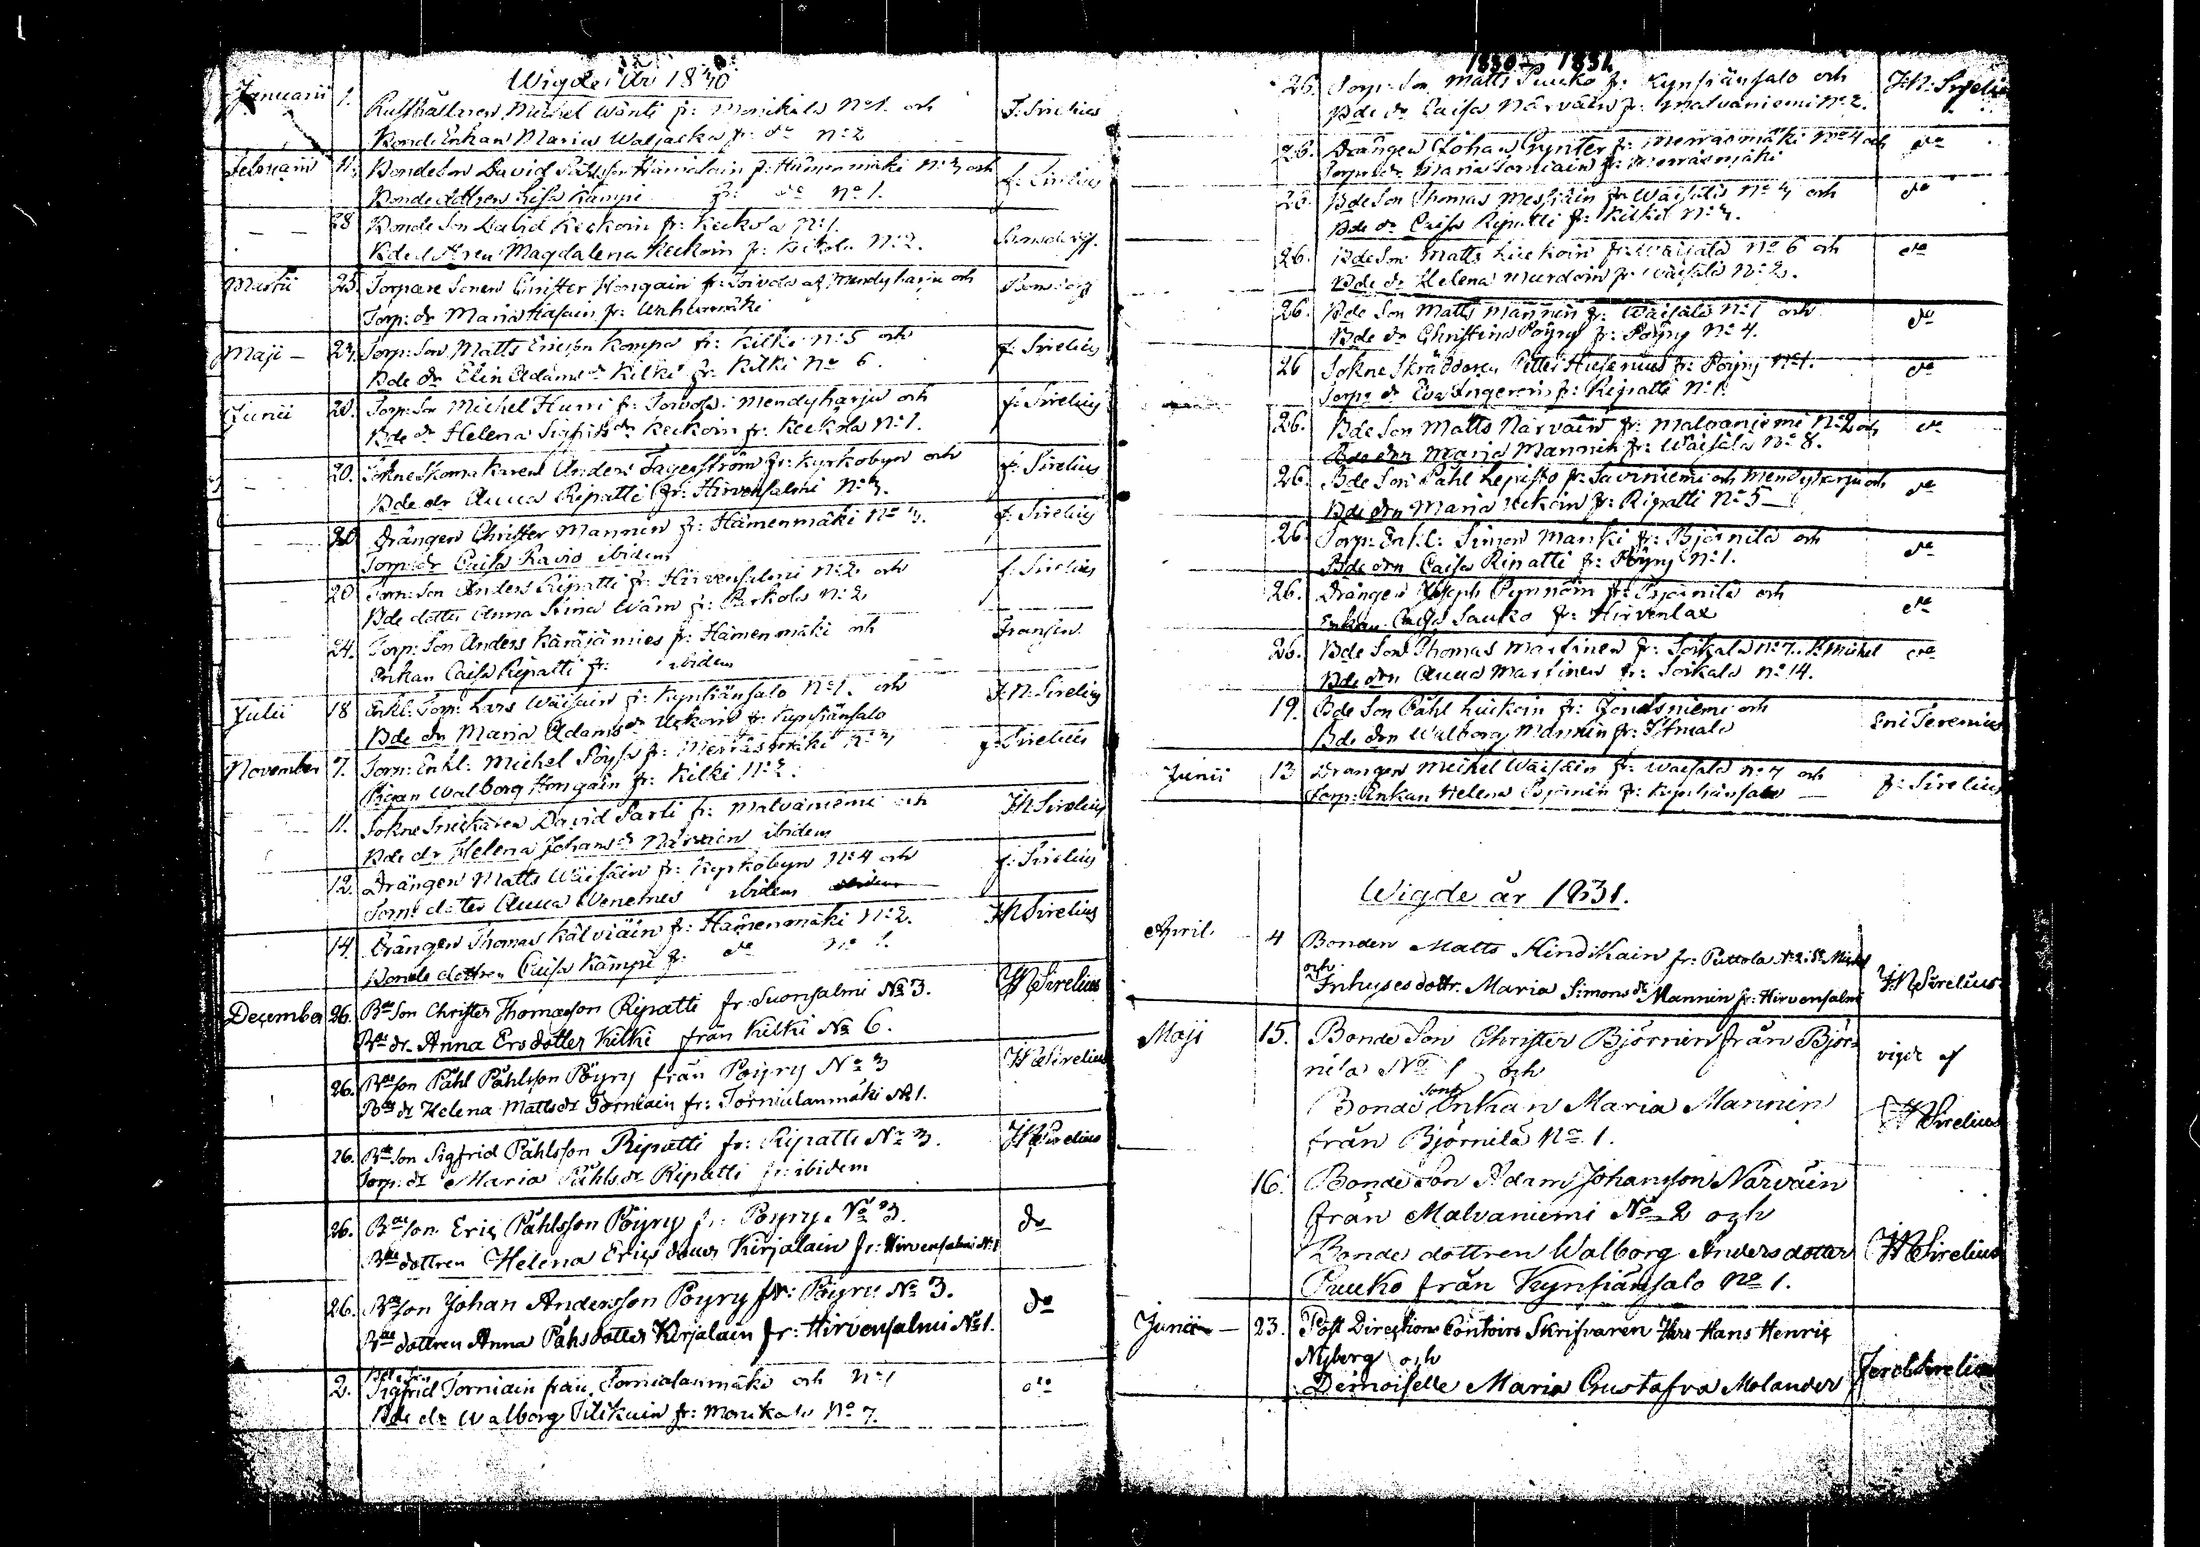 Wigde År 1830
Januarii 1. Rusthållaren Michel Wänti fr: Monikala No 1. och F: Sirelius
Bonde Enkan Maria Waljacka fr: do No 2
Februarii Bondeson David Påhlsson Hämäläin fr: Hämenmäki No 3 och f: Sirelius
Bonde dottren Lisa Kämpi fr: do No 1.
28 Bonde Son David Keckoin fr: Keckola No 1.
Bde dottren Magdalena Keckoin fr: Kekola No 2.
Martii 25. Torpare Sonen Christer Hongain fr: Toivola af Mendyharju och
Torp: dr Maria fr:
Maji 23. Torp: Son Matts Ericsson Kompa fr: Kilki No 5 och f: Sirelius
Bde dr Elin Adams dr Kilki fr: Kilki No 6.
Junii 20. Torp: Son Michel Hurri fr: i Mendyharju och f: Sirelius
Bde dr Helena Sigfrids dr Keckoin fr: Keckola No 1.
20. Sokne Skomakaren Anders Fagerström fr: Kyrkobyn och f: Sirelius
Bde dr Anna Ripatti fr: Hirvensalmi No 3.
20 Drängen Christer Mannin fr: Hämenmäki No 3. f: Sirelius
Torp: dr Caisa Ravio ibidem
20 Torp: Son Anders Ripatti fr: Hirvensalmi No 2 och f: Sirelius
Bde dotter Anna Stina Wärn fr: Parkola No 2
24. Torp: Son Anders Käräjämies fr: Hämenmäki och Fransén
Enkan Caisa Ripatti fr: ibidem
Julii 18 Enkl: Torp: Lars Wäisäin fr: Kynsiänsalo No 1. och J.N. Sirelius
Bde dr Maria Adams dr Uckoin fr: Kynsiänsalo
November 7. Torp: Enkl: Michel Pöysä fr: Merrasmäki No 3 f: Sirelius
Pigan Walborg Hongain fr: Kilki No 2.
11. Sokne Snickaren David Parti fr: Malvaniemi och JN Sirelius
Bde dr Helena Johans dr Närväin ibidem
12. Drängen Matts Wäisäin fr: Kyrkobyn No 4 och f: Sirelius
Torp: dotter Anna Wenemes ibidem
14. Drängen Thomas Kälviäin fr: Hämenmäki No 2. JN Sirelius
Bonde dottren Caisa Kämpi fr: do No 1.
December 26. Bde Son Christer Thomasson Ripatti fr: Suonsalmi No 3. JN Sirelius
Bde dr Anna Ersdotter Kilki från Kilki No 6.
26. Bde son Påhl Påhlsson Pöyry från Pöyry No 3 JN Sirelius
Bde dr Helena Mattsdr Torniain fr: Torniulanmäki No 1.
26. Bde Son Sigfrid Påhlsson Ripatti fr: Ripatti No 3. JN Sirelius
Torp: dr Maria Påhlsdr Ripatti fr: ibidem
26. Bde son Eric Påhlsson Pöyry fr: Pöyry No 3. do
Bde dottren Helena Erics dotter Kirjalain fr: Hirvensalmi No 1
26. Bde son Johan Andersson Pöyry fr: Pöyry No 3. do
Bde dottren Anna Påhsdotter Kirjalain fr: Hirvensalmi No 1.
2. Bde Son Sigfrid Torniain från Tornialanmäki och No 1 do
Bde dr Walborg Tilikain fr: Monikala No 7.
1830 - 1831
26. Torp: Son Matts Puuko fr: Kynsiänsalo och J.N. Sirelius
Bde dr Caisa Närväin fr: Malvaniemi No 2.
26. Drängen Johan Pynter fr: Merrasmäki No 4 och do
Torp: dr Maria Torniain fr: Merrasmäki
26. Bde Son Thomas fr: Wäisälä No 4 och do
Bde dr Caisa Ripatti fr: Kilki No 3.
26. Bde Son Matts Luckoin fr: Wäisälä No 6 och do
Bde dr Helena Murdoin fr: Wäisälä No 2.
26. Bde Son Matts Mannin fr: Wäisälä No 1 och do
Bde dr Christina Pöyry fr: Pöyry No 4.
26 Sokne Skräddaren Petter fr: Pöyry No 1. do
Torp: dr Eva Ingeroin fr: Ripatti No 1.
26. Bde Son Matts Närväin fr: Malvaniemi No 2 och do
Bde drn Maria Mannin fr: Wäisälä No 8.
26. Bde Son Påhl Lepistö fr: Saviniemi och Mendyharju och do
Bde drn Maria Uckoin fr: Ripatti No 5
26. Torp: Enkl: Simon Manki fr: Björnilä och do
Bde drn Caisa Ripatti fr: Pöyry No 1.
26. Drängen Joseph Pynnöin fr: Björnilä och do
Enkan Caisa Sauko fr: Hirvenlax
26. Bde Son Thomas Martinen fr: Soikala No 7. St Michel do
Bde drn Anna Martinen fr: Soikala No 14.
19. Bde Son Påhl Luckoin fr: Jondsniemi och
Bde drn Walborg Mannin fr:
Junii 13 Drängen Michel Wäisäin fr: Waisälä No 7 och f: Sirelius
Torp: Enkan Helena Björnin fr: Kynsiänsalo
Wigde år 1831.
April. 4 Bonden Matts Hindikain fr: Puttola No 2 i St Michel
och Inhyses dottr. Maria Simons dr Mannin fr: Hirvensalmi JN Sirelius
Maji 15. Bonde Son Christer Björnin från Björ-
nila No 1 och vigde af
Bonde sons Enkan Maria Mannin JN Sirelius
från Björnilä No 1.
16. Bonde Son Adam Johansson Närväin
från Malvaniemi No 2 och
Bonde dottren Walborg Andersdotter JN Sirelius
Puuko från Kynsiänsalo No 1.
Junii 23. Post Directions Contoirs Skrifvaren Herr Hans Henric
Nyberg och
Demoiselle Maria Gustafva Molander